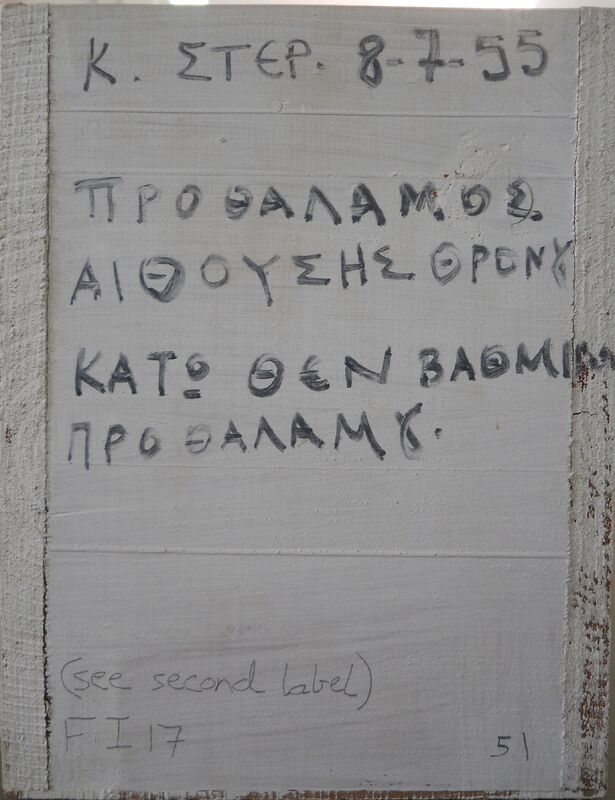 Κ. ΣΤΕΡ. 8-7-55
ΠΡΟΘΑΛΑΜΟΣ
ΑΙΘΟΥΣΗΣ ΘΡΟΝȢ
ΚΑΤΩ ΘΕΝ
ΠΡΟΘΑΛΑΜȢ.
(see second label)
F I 17
51